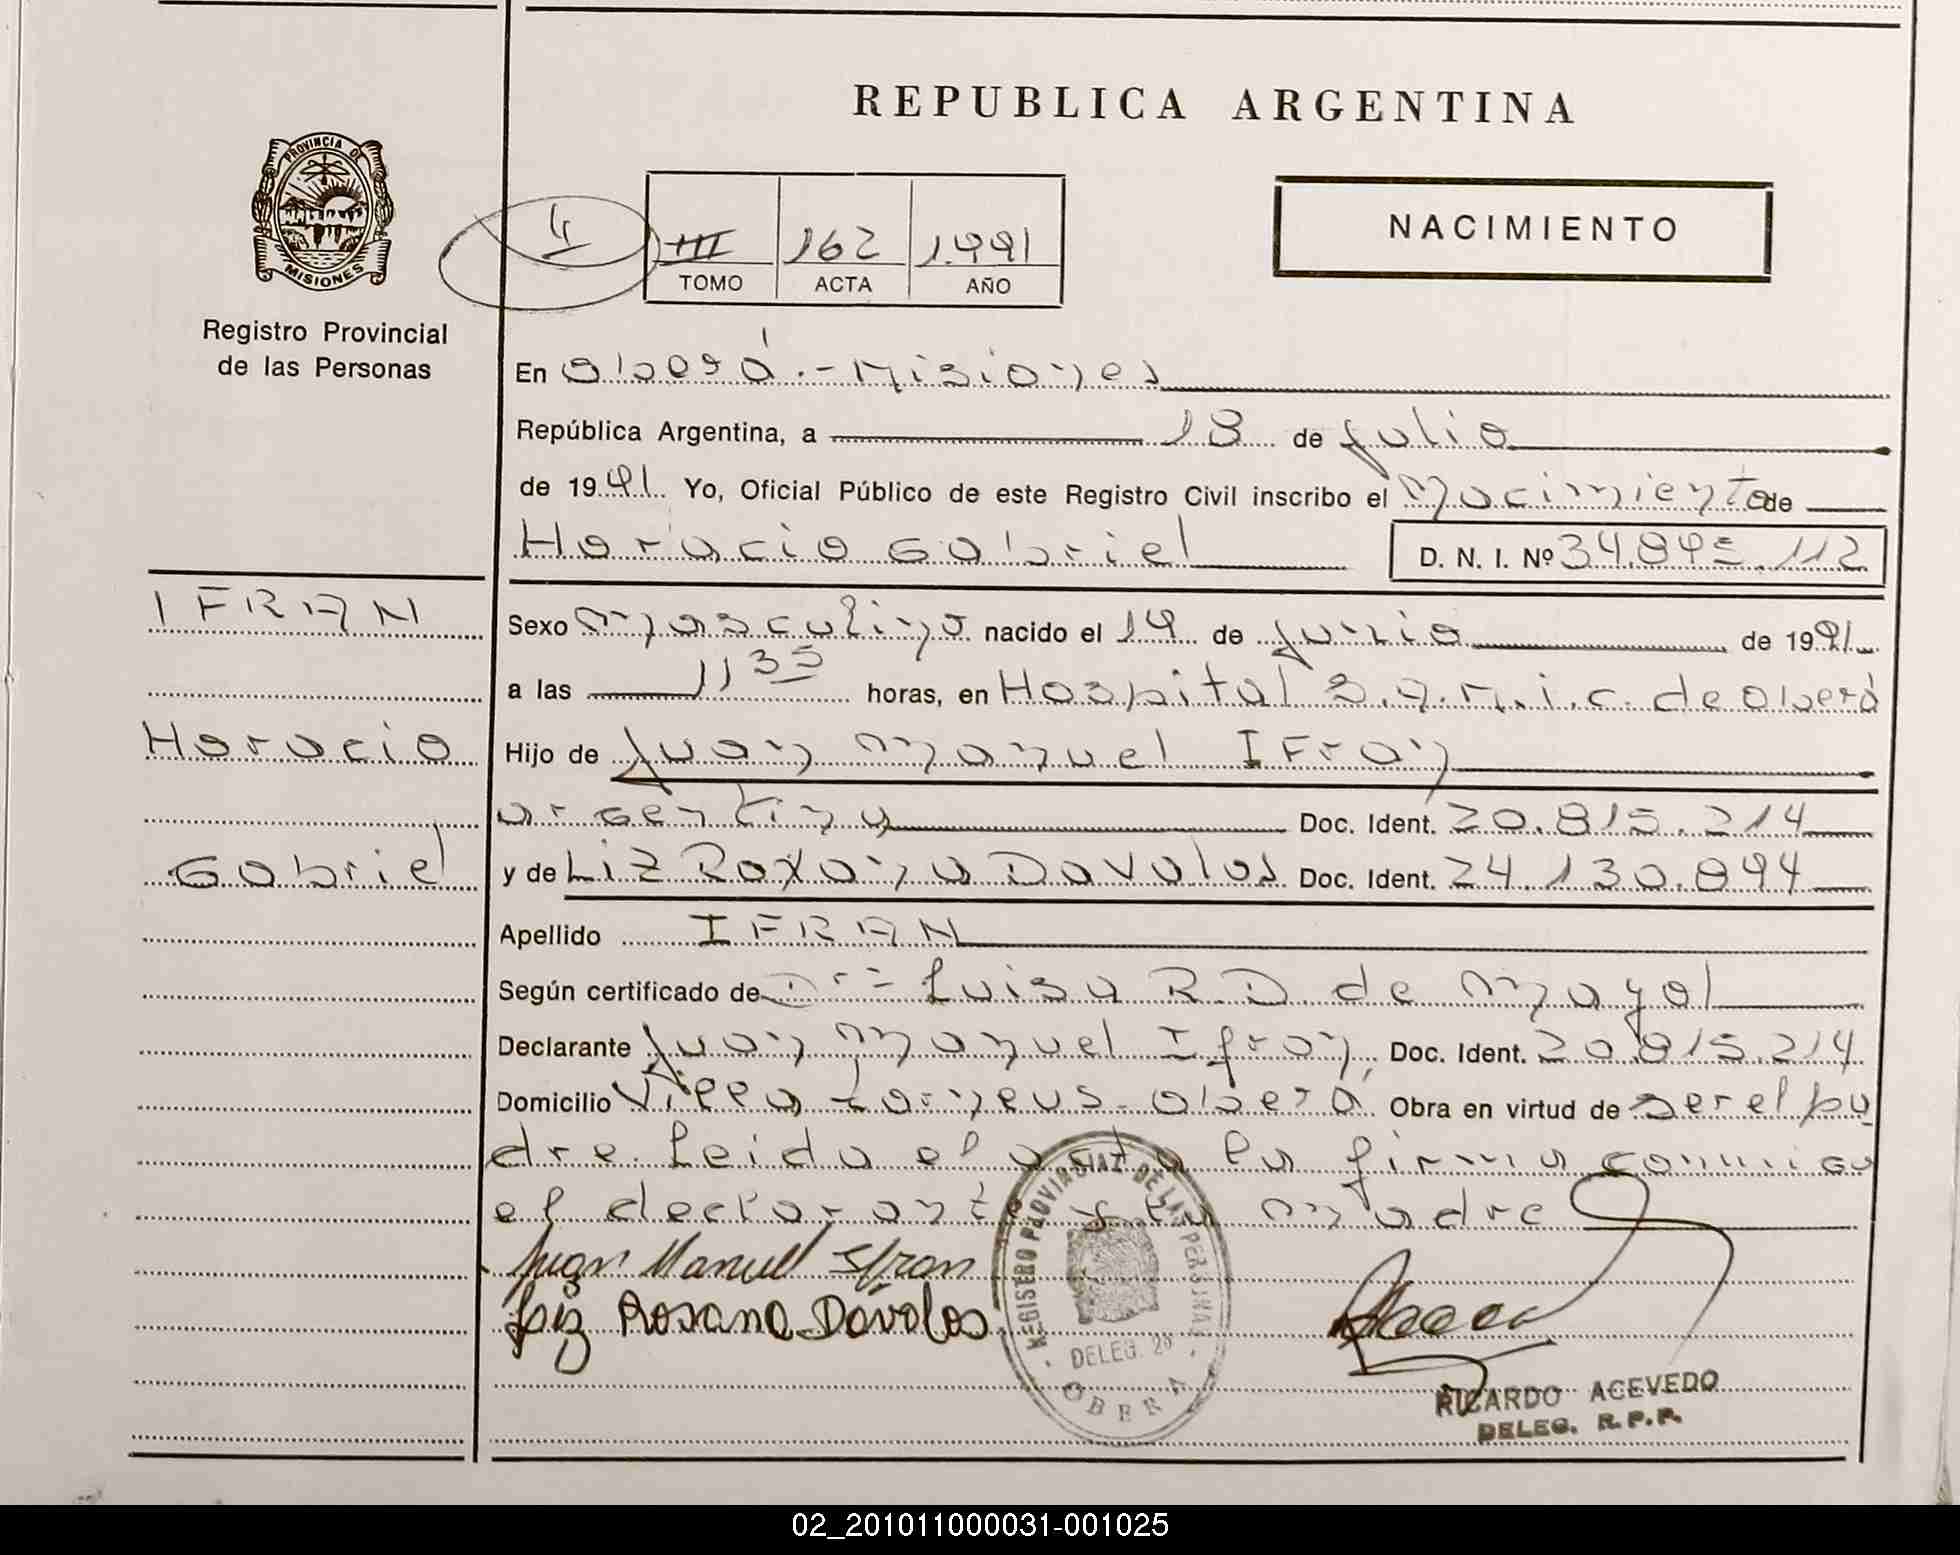 REPUBLICA ARGENTINA
PROVINCIA DE
MISIONES
Registro Provincial
de las Personas
4
III 162 1.991
TOMO ACTA AÑO
NACIMIENTO
En Oberá.- Misiones
República Argentina, a 18 de Julio
de 1991 Yo, Oficial Público de este Registro Civil inscribo el Nacimiento de
Horacio Gabriel D. N. I. Nº
IFRAN
Horacio
Gabriel
Sexo masculino nacido el 14 de Junio de 1991
a las 11 35 horas, en Hospital S.A.M.i.c. de Oberá
Hijo de Juan Manuel IFran
argentina Doc. Ident. 20.815.214
y de Liz Roxana Davalos Doc. Ident. 24.130.894
Apellido IFRAN
Según certificado de Dra Luisa R.D. de Mayol
Declarante Juan Manuel Ifran, Doc. Ident. 20.815.214
Domicilio Villa Oberá Obra en virtud de ser el pa
dre. Leida el acta la firma conmigo
el declarante y la madre
Juan Manuel Ifran
Liz Rosana Dávalos
REGISTRO PROVINCIAL DE LAS PERSONAS
DELEG. 2ª
OBERA
RICARDO ACEVEDO
DELEG. R.P.P.
02_201011000031-001025